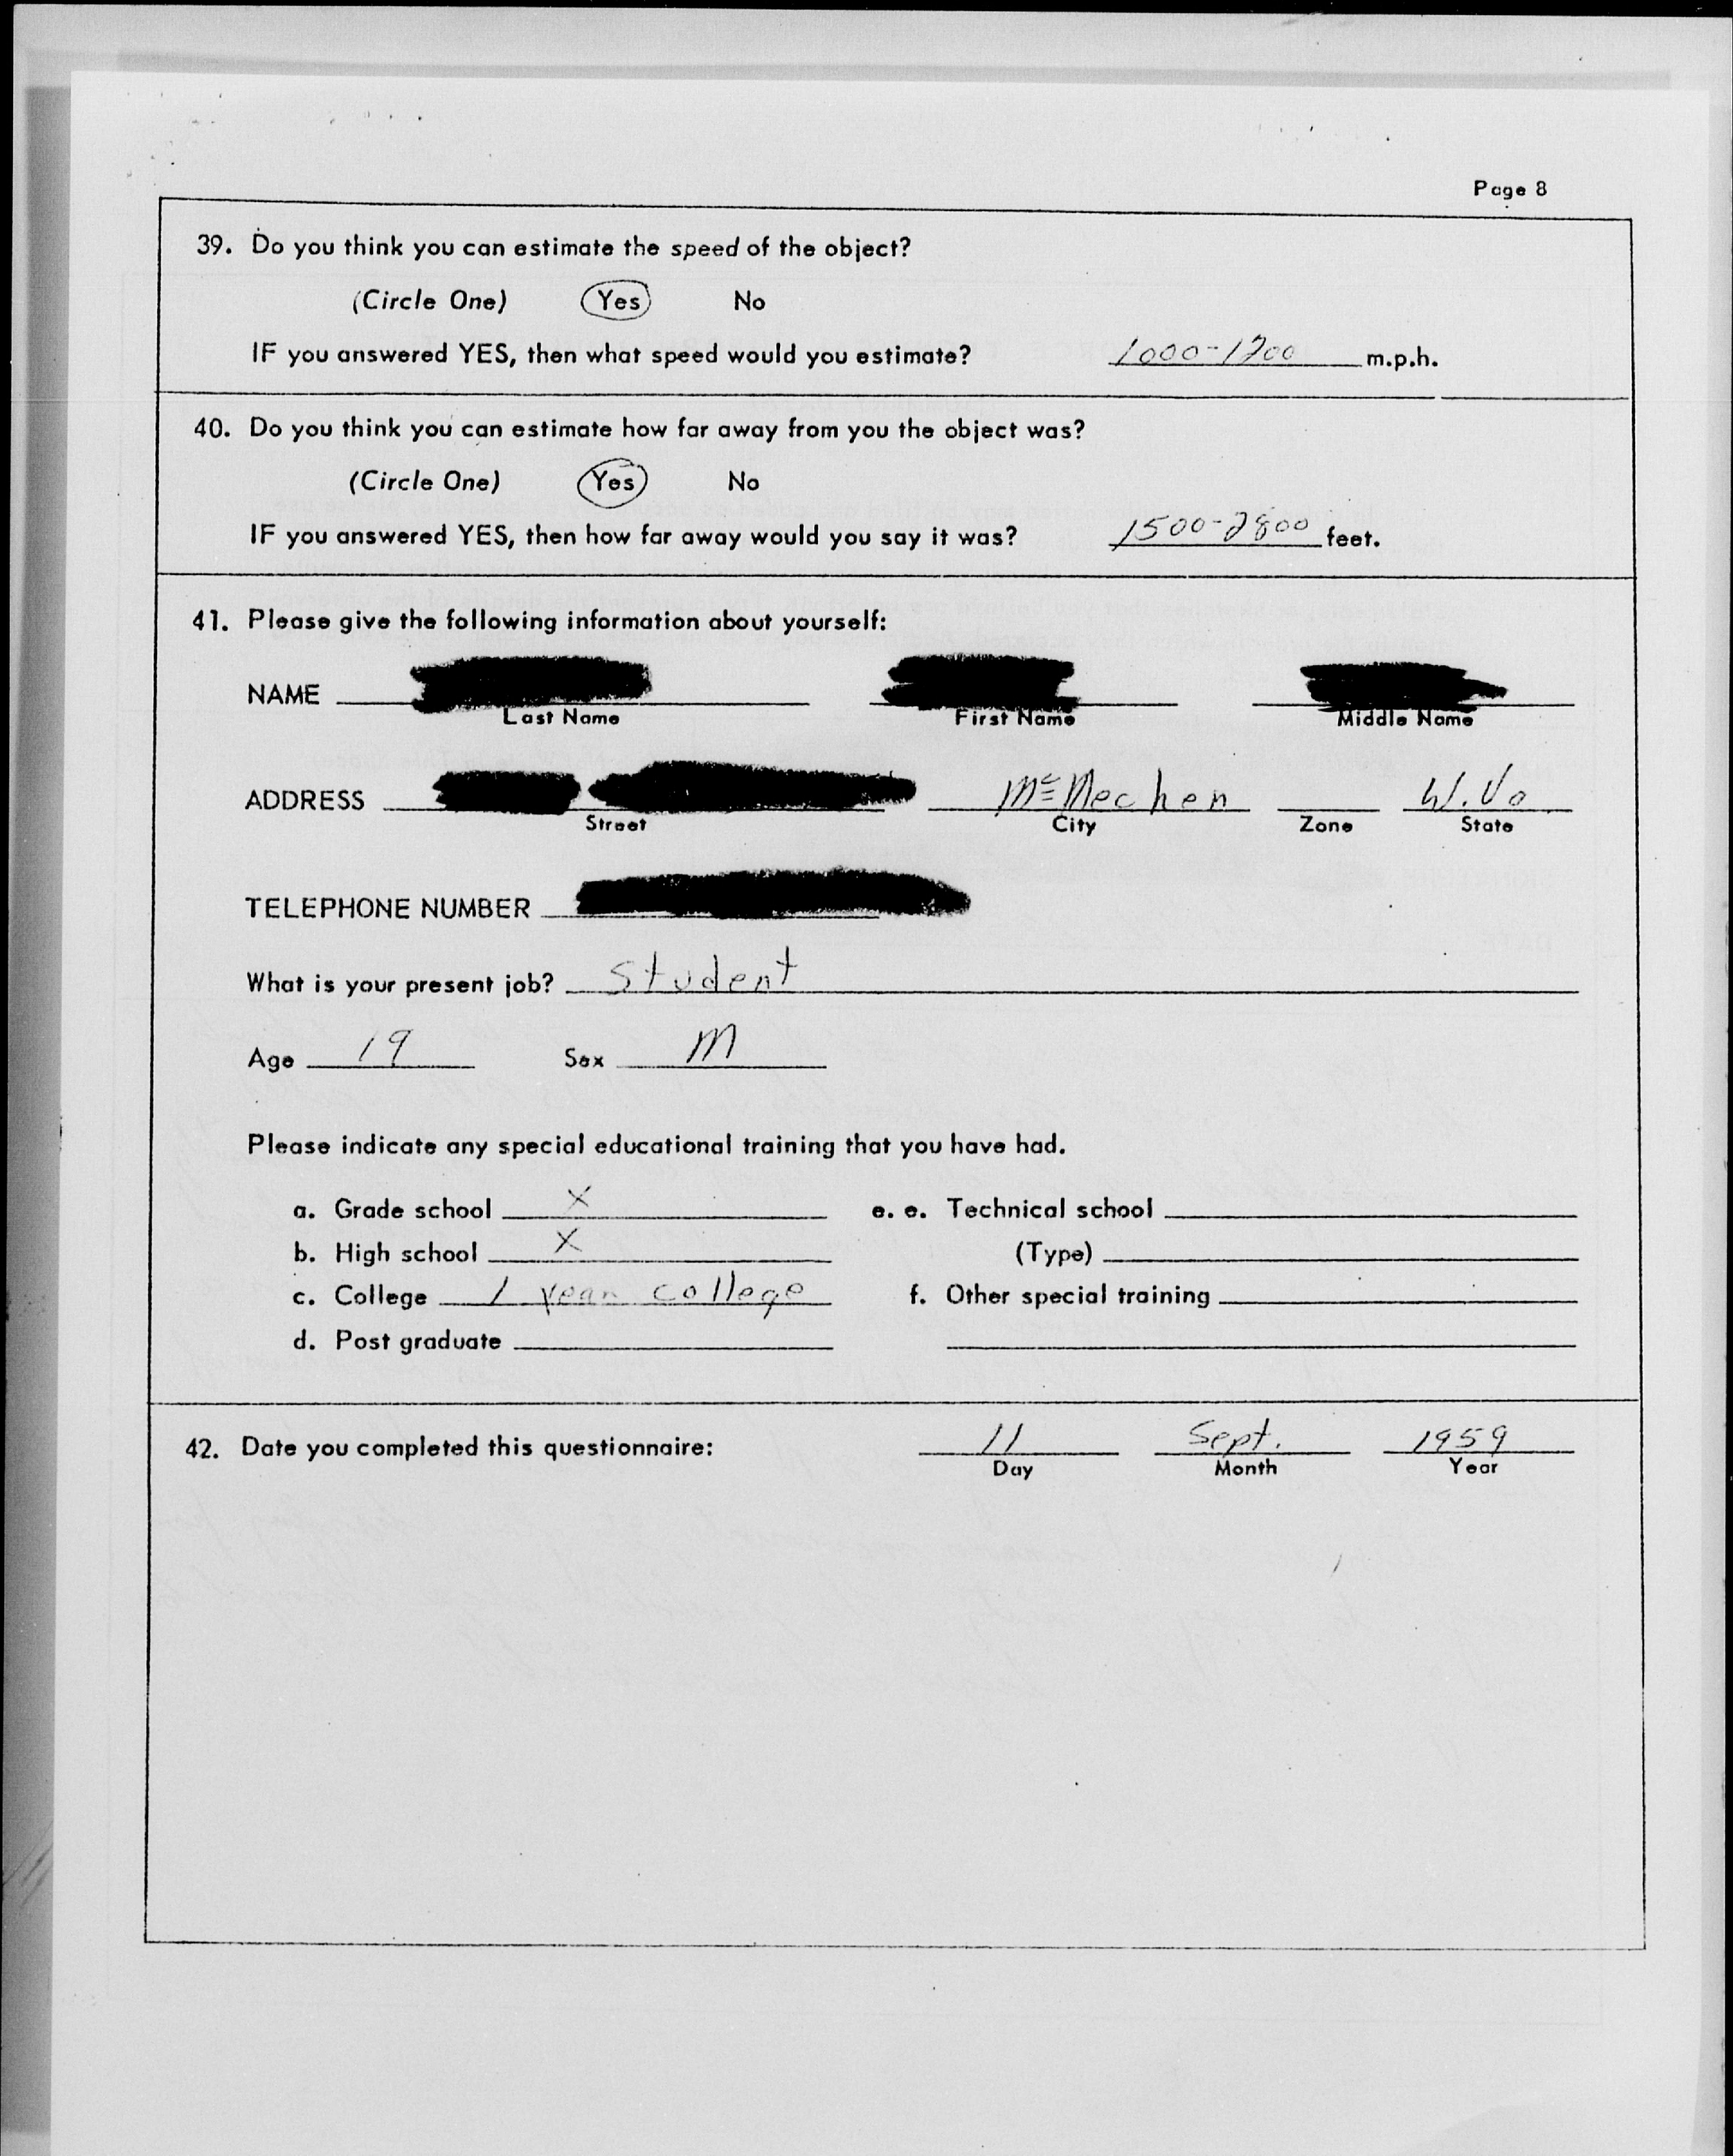 Page 8
39. Do you think you can estimate the speed of the object?
(Circle One) Yes No
IF you answered YES, then what speed would you estimate? 1000-1200 m.p.h.
40. Do you think you can estimate how far away from you the object was?
(Circle One) Yes No
IF you answered YES, then how far away would you say it was? 1500-2800 feet.
41. Please give the following information about yourself:
NAME
Last Name First Name Middle Name
ADDRESS McMechen W. Va
Street City Zone State
TELEPHONE NUMBER
What is your present job? Student
Age 19 Sex M
Please indicate any special educational training that you have had.
a. Grade school X e. e. Technical school
b. High school X (Type)
c. College 1 year college f. Other special training
d. Post graduate
42. Date you completed this questionnaire: 11 Sept. 1959
Day Month Year